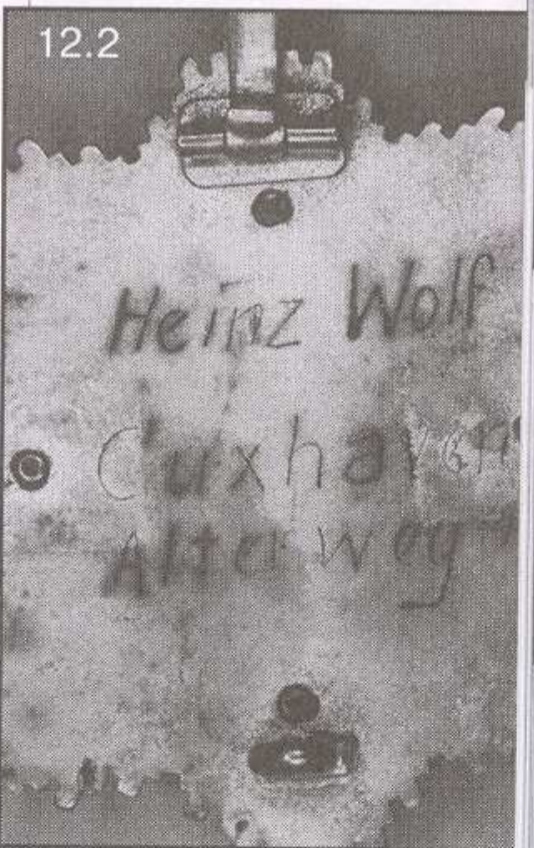 12.2
Heinz Wolf
Cuxhaven
Alterweg